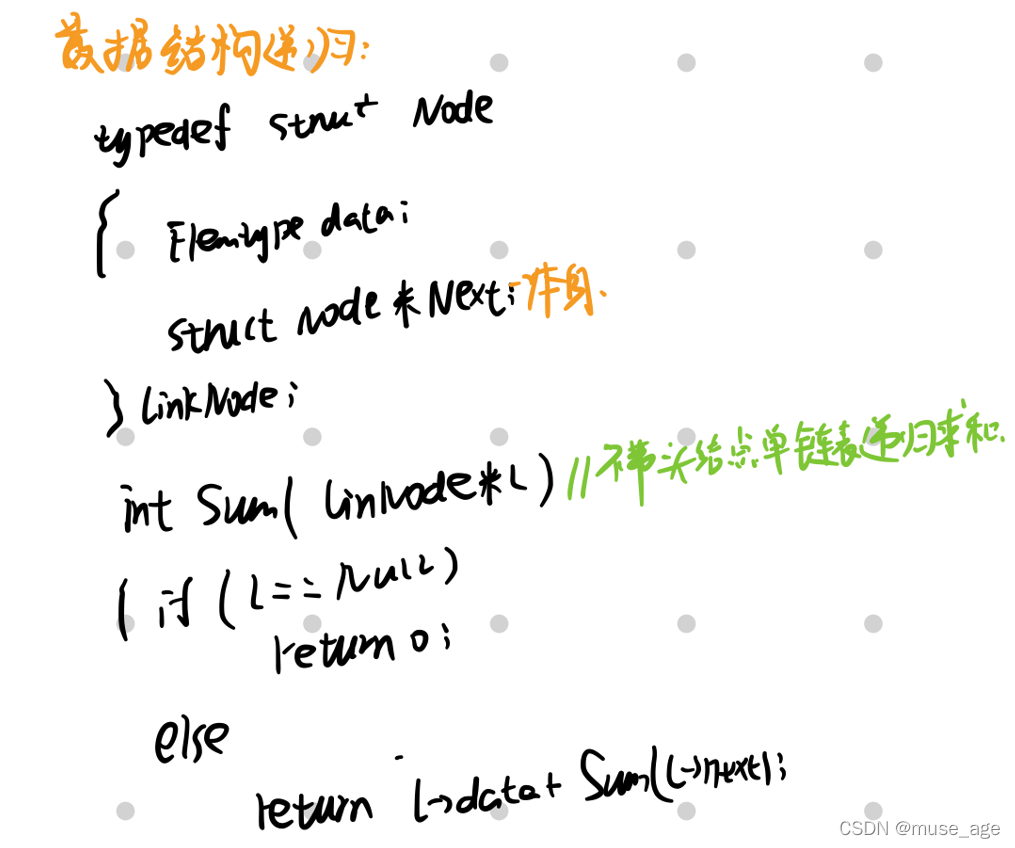 数据结构递归:
typedef struct Node
{ Elemtype data;
struct Node*Next;
} LinkNode;
int Sum( LinkNode*L) //不带头结点单链表递归求和.
{ if (L==NULL)
return 0;
else
return L->data+ Sum(L->next);
CSDN @muse_age